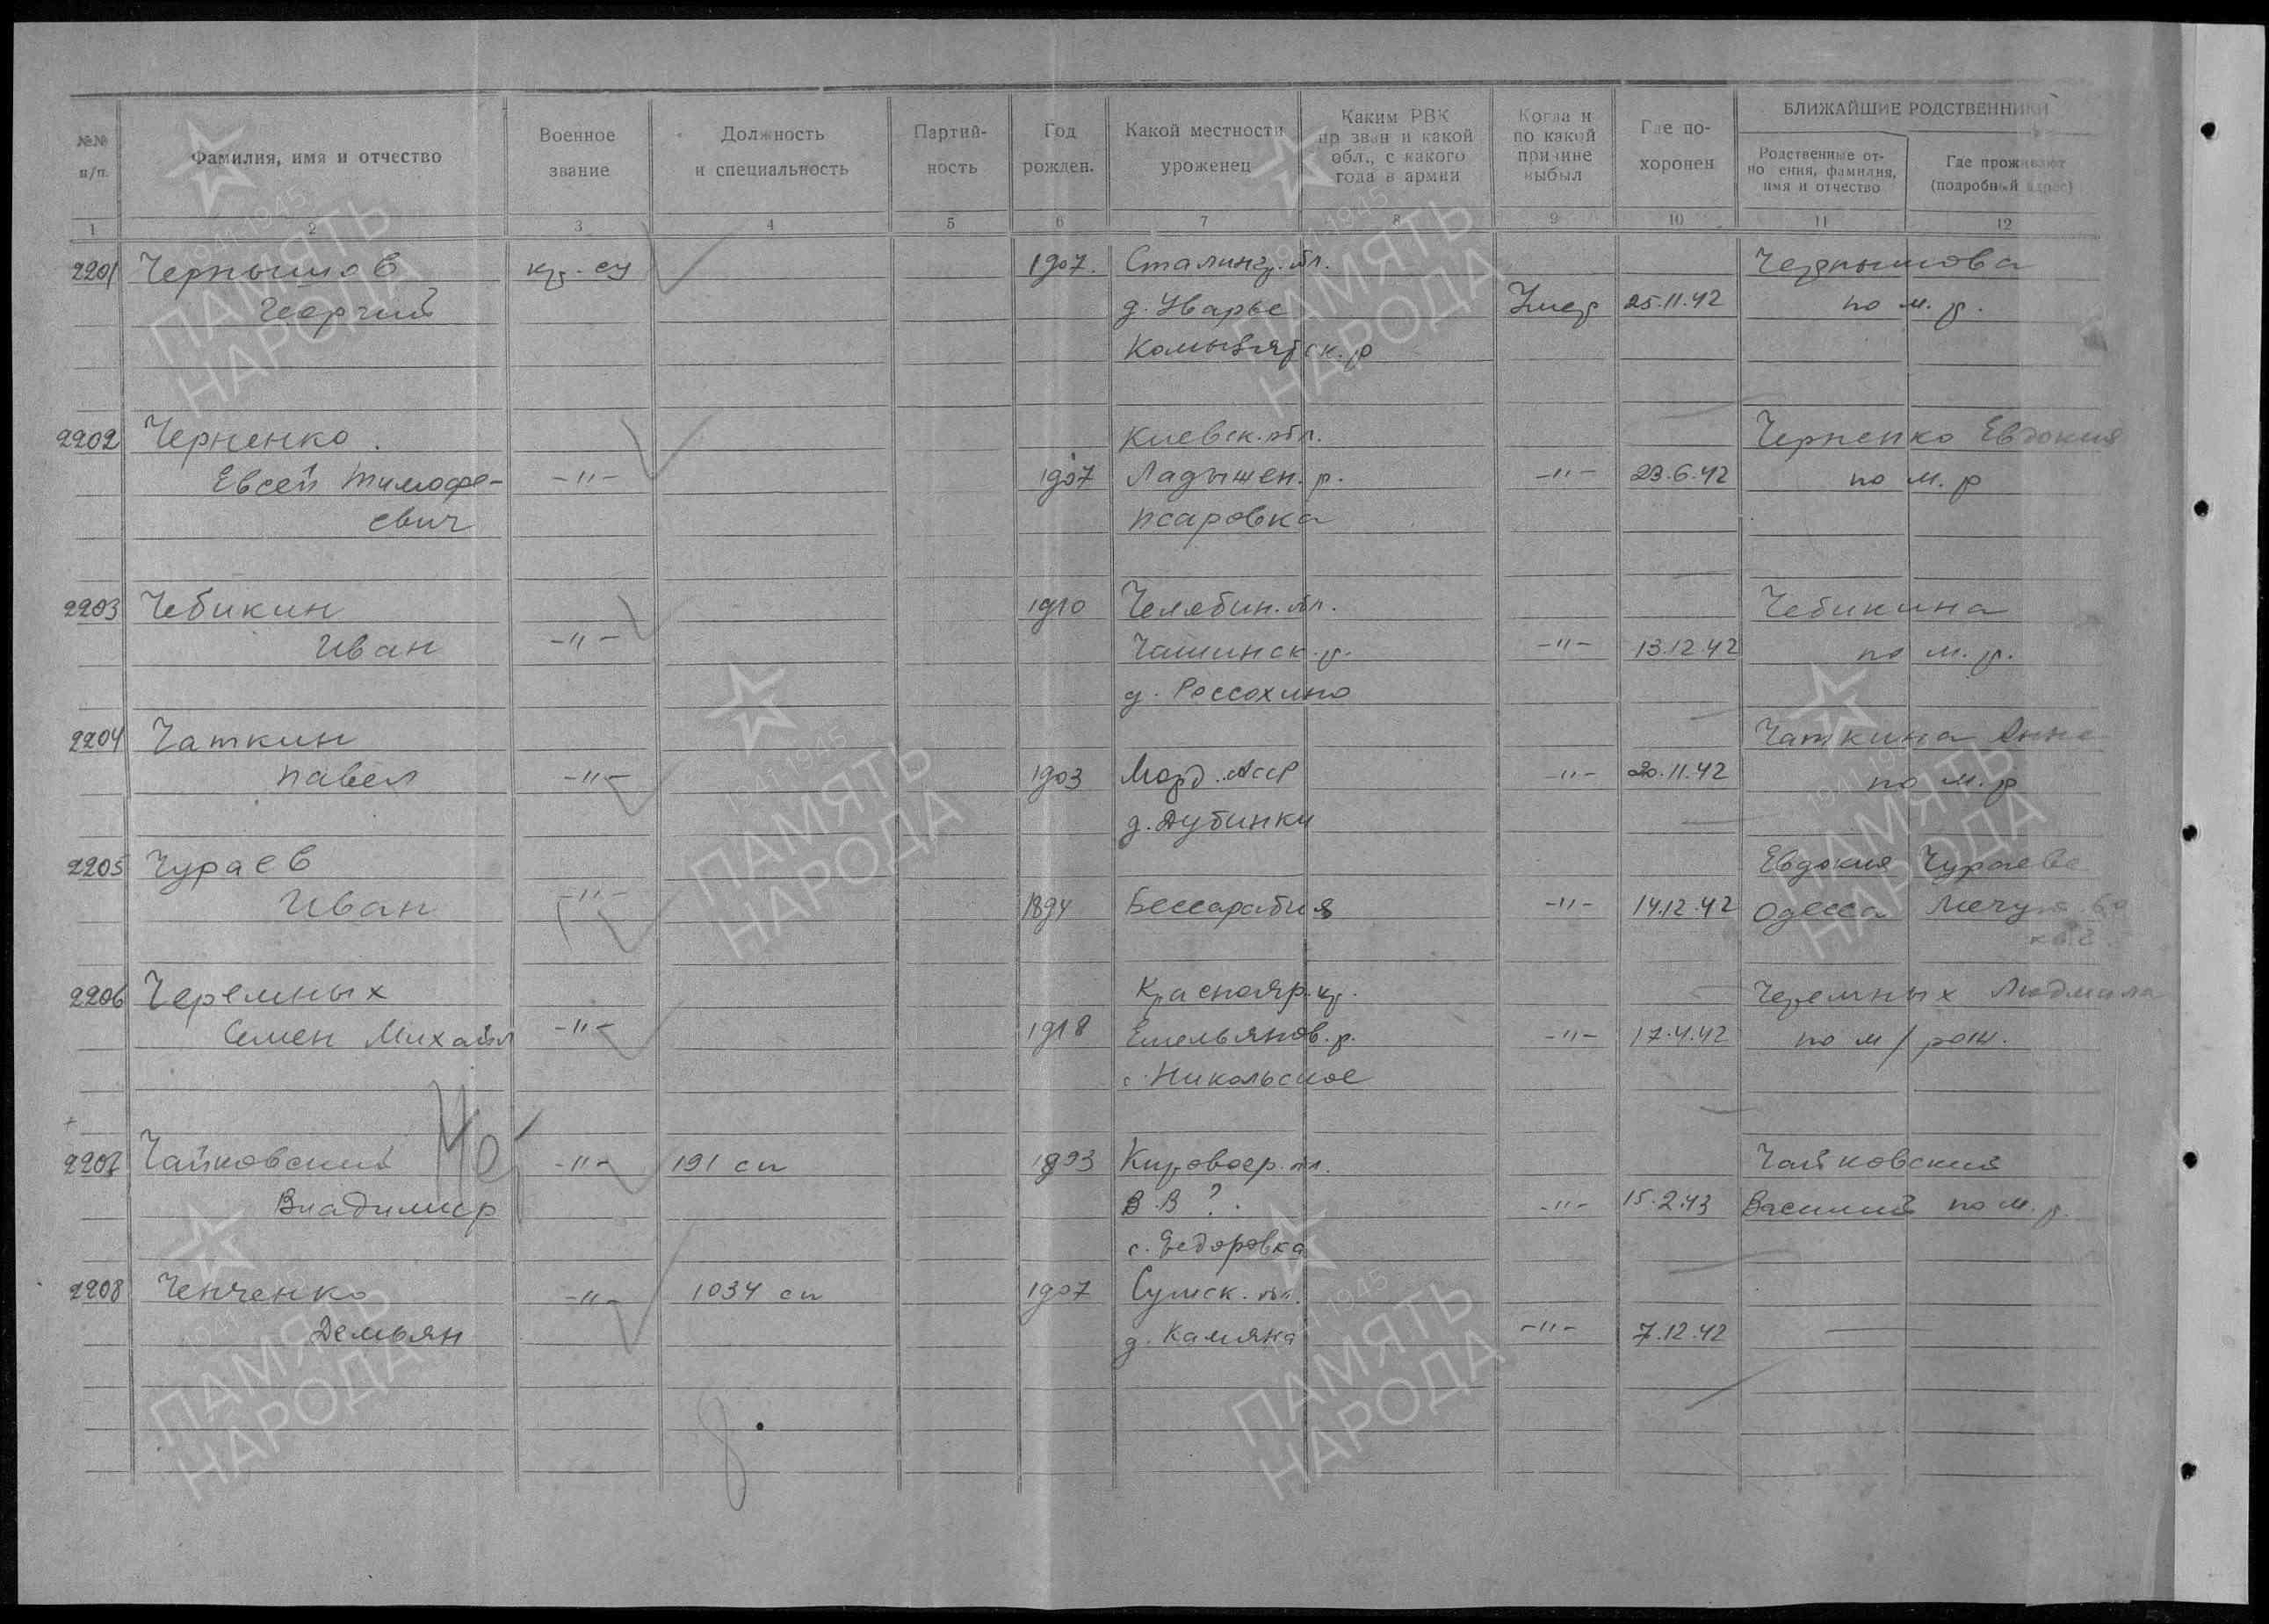 №№ п/п. Фамилия, имя и отчество Военное звание Должность и специальность Партий- ность Год рожден. Какой местности уроженец Каким РВК призван и какой обл., с какого года в армии Когда и по какой причине выбыл Где по- хоронен БЛИЖАЙШИЕ РОДСТВЕННИКИ
Родственные от- но ения, фамилия, имя и отчество Где проживают (подробный адрес)
1 2 3 4 5 6 7 8 9 10 11 12
2201 Чернышов кр-ец 1907. Сталингр. обл. Чернышова
Георгий д. Уварье Умер 25.11.42 по м. р.
2202 Черненко. Киевск. обл. Черненко Евдокия
Евсей Тимофе- -"- 1907 Ладыжен. р. -"- 23.6.42 по м. р
евич Псаровка
2203 Чебикин 1910 Челябин. обл. Чебикина
Иван -"- Чашинск. р. -"- 13.12.42 по м. р.
д. Россохино
2204 Чаткин Чаткина Анна
Павел -"- 1903 Морд. АССР -"- 20.11.42 по м. р
д. Дубинки
2205 Чураев Евдокия Чураева
Иван -"- 1894 Бессарабия -"- 14.12.42 Одесса
2206 Черемных Краснояр. кр. Черемных Людмила
Семен Михайл -"- 1918 Емельянов. р. -"- 17.4.42 по м/рож.
с. Никольское
2207 Чайковский -"- 191 сп 1893 Кировогр. обл. Чайковский
Владимир В. В ?. -"- 15.2.43 Василий по м. р.
с. Федоровка
2208 Ченченко -"- 1034 сп 1907 Сумск. обл.
Демьян д. Камяна -"- 7.12.42 —
8
1941-1945
ПАМЯТЬ
НАРОДА